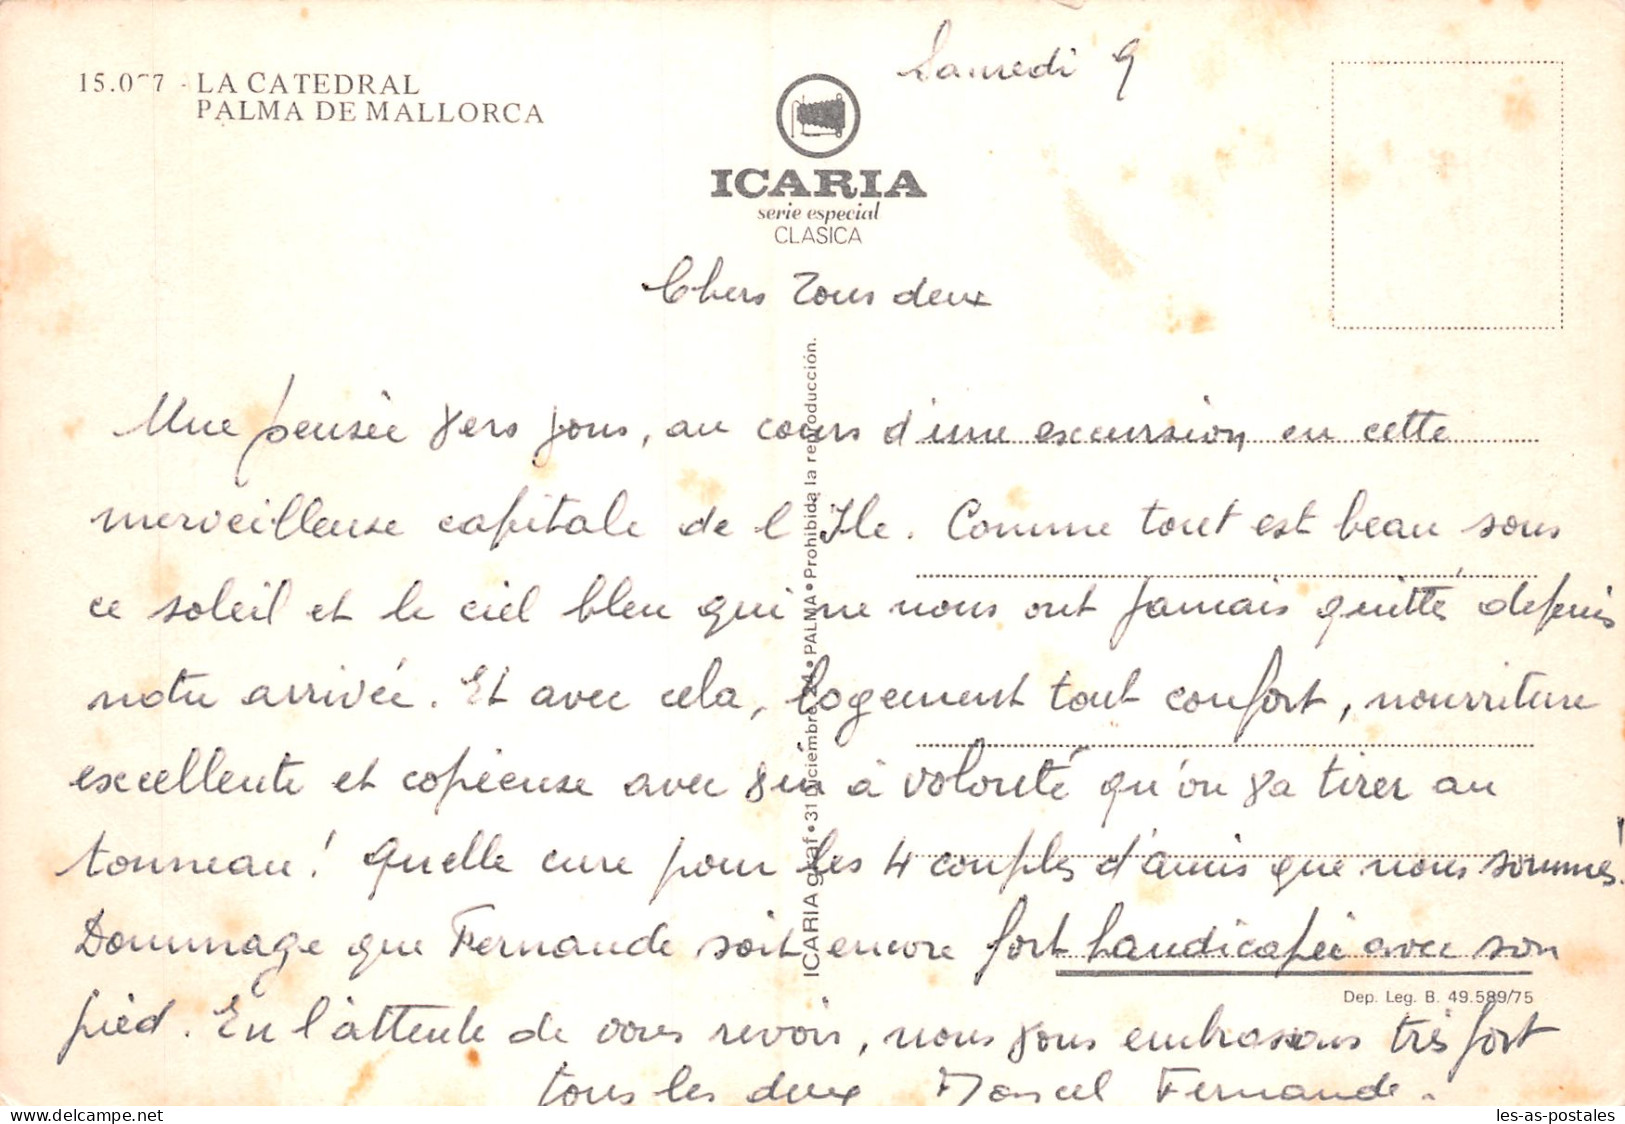 Samedi 9
15.0 7 - LA CATEDRAL
PALMA DE MALLORCA
ICARIA
serie especial
CLASICA
Chers Tous deux
Une pensée vers vous, au cours d'une excursion en cette
merveilleuse capitale de l'Ile. Comme tout est beau sous
ce soleil et le ciel bleu qui ne nous ont jamais quitté depuis
notre arrivée. Et avec cela, logement tout confort, nourriture
excellente et copieuse avec vin à volonté qu'on va tirer au
tonneau! Quelle cure pour les 4 couples d'amis que nous sommes!
Dommage que Fernande soit encore fort handicapée avec son
pied. En l'attente de vous revoir, nous vous embrassons très fort
tous les deux Marcel Fernande.
ICARIA graf • 31 Diciembre, 24 • PALMA • Prohibida la reproducción.
Dep. Leg. B. 49.589/75
les-as-postales